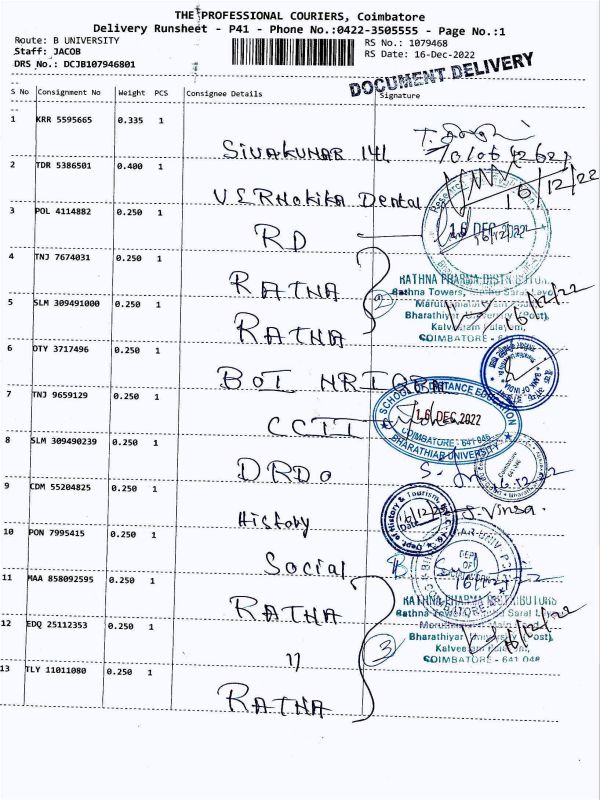 THE PROFESSIONAL COURIERS, Coimbatore
Delivery Runsheet - P41 - Phone No.:0422-3505555 - Page No.:1
Route: B UNIVERSITY
RS No.: 1079468
Staff: JACOB
RS Date: 16-Dec-2022
DRS No.: DCJB107946801
DOCUMENT DELIVERY
S No Consignment No Weight PCS Consignee Details Signature
1 KRR 5595665 0.335 1
SIVAKUMAR 141
2 TDR 5386501 0.400 1
Dental
16/12/22
3 POL 4114882 0.250 1
RD
16 DEC 2022
4 TNJ 7674031 0.250 1
RATNA
2
RATHNA PHARMA DISTRIBUTORS
Rathna Towers,
5 SLM 309491000 0.250 1
RATNA
Bharathiyar University (Post),
Kalveeram Palayam,
COIMBATORE - 641 046
16/12/22
6 OTY 3717496 0.250 1
BOI
BANK OF INDIA
7 TNJ 9659129 0.250 1
CCII
SCHOOL OF DISTANCE EDUCATION
16 DEC 2022
COIMBATORE - 641 046
BHARATHIAR UNIVERSITY
8 SLM 309490239 0.250 1
DRDO
9 CDM 55204825 0.250 1
History
Dept of History & Tourism
16/12/22
10 PON 7995415 0.250 1
Social
DEPT OF
11 MAA 858092595 0.250 1
RATNA
RATHNA PHARMA DISTRIBUTORS
12 EDQ 25112353 0.250 1
11
3
Bharathiyar University (Post),
Kalveeram Palayam,
COIMBATORE - 641 046
16/12/22
13 TLY 11011080 0.250 1
RATNA